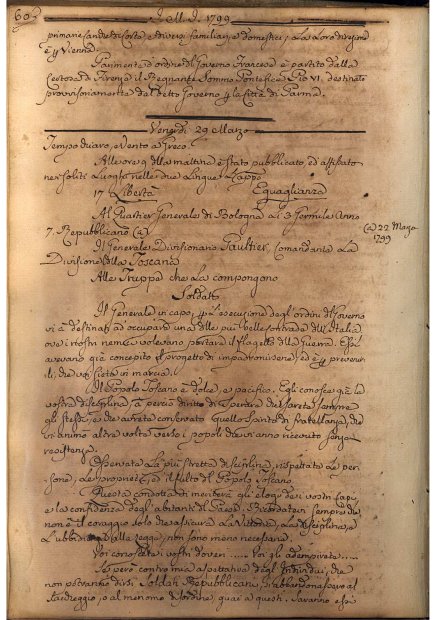 60
I.M.I. 1799
primane Landretti Costa e diversi familiari, e domestici; La Loro direzione
è p Vienna
Parimente d'ordine di Governo Francese è partito dalla
Certosa di Firenze il Regnante Sommo Pontefice Pio VI, destinato
provvisoriamente dal detto Governo p la Città di Parma.
Venerdì 29 Marzo
Tempo chiaro, e Vento a Greco.
Alle ore 9 della mattina è stato pubblicato, ed affissato
nei soliti Luoghi nelle due Lingue
17 Libertà Eguaglianza
Al Quartier Generale di Bologna li 3 Germile Anno
7. Repubblicano (a)
(a) 22 Marzo
1799
Il Generale Divisionario Gaultier, Comandante La
Divisione della Toscana
Alle Truppe che La compongono
Soldati
Il Generale in capo, p l'esecuzione degli ordini del Governo
vi à destinati ad occupare una delle più belle Contrade dell'Italia
ove i vostri nemici volevano portare il flagello della Guerra. Essi
avevano già concepito il progetto di impadronirsene, ed è p prevenir-
li, che voi siete in marcia.
Il Popolo Toscano è dolce, e pacifico. Egli conosce già la
vostra disciplina, à perciò diritto di sperare che sarete sempre
gli stessi, e che avrete conservato quello spirito di fratellanza, che
vi animò altre volte verso i popoli che vi anno ricevuto senza
resistenza.
Osservate La più stretta disciplina, rispettate Le per-
sone, Le proprietà, e il culto del Popolo Toscano.
Questa condotta vi meriterà gli elogi dei vostri Capi,
e la confidenza degli abitanti del Paese. Ricordatevi sempre che
non è il coraggio solo che assicura La Vittoria, La disciplina, e
L'ubbidienza alla Legge, non sono meno necessarie.
Voi conoscete i vostri doveri..... Voi gli adempirete.....
Se però contro mia aspettativa degl'Individui, che
non potranno dirsi Soldati Repubblicani, si abbandonassero al
saccheggio, o al menomo disordine, guai a questi. Saranno essi